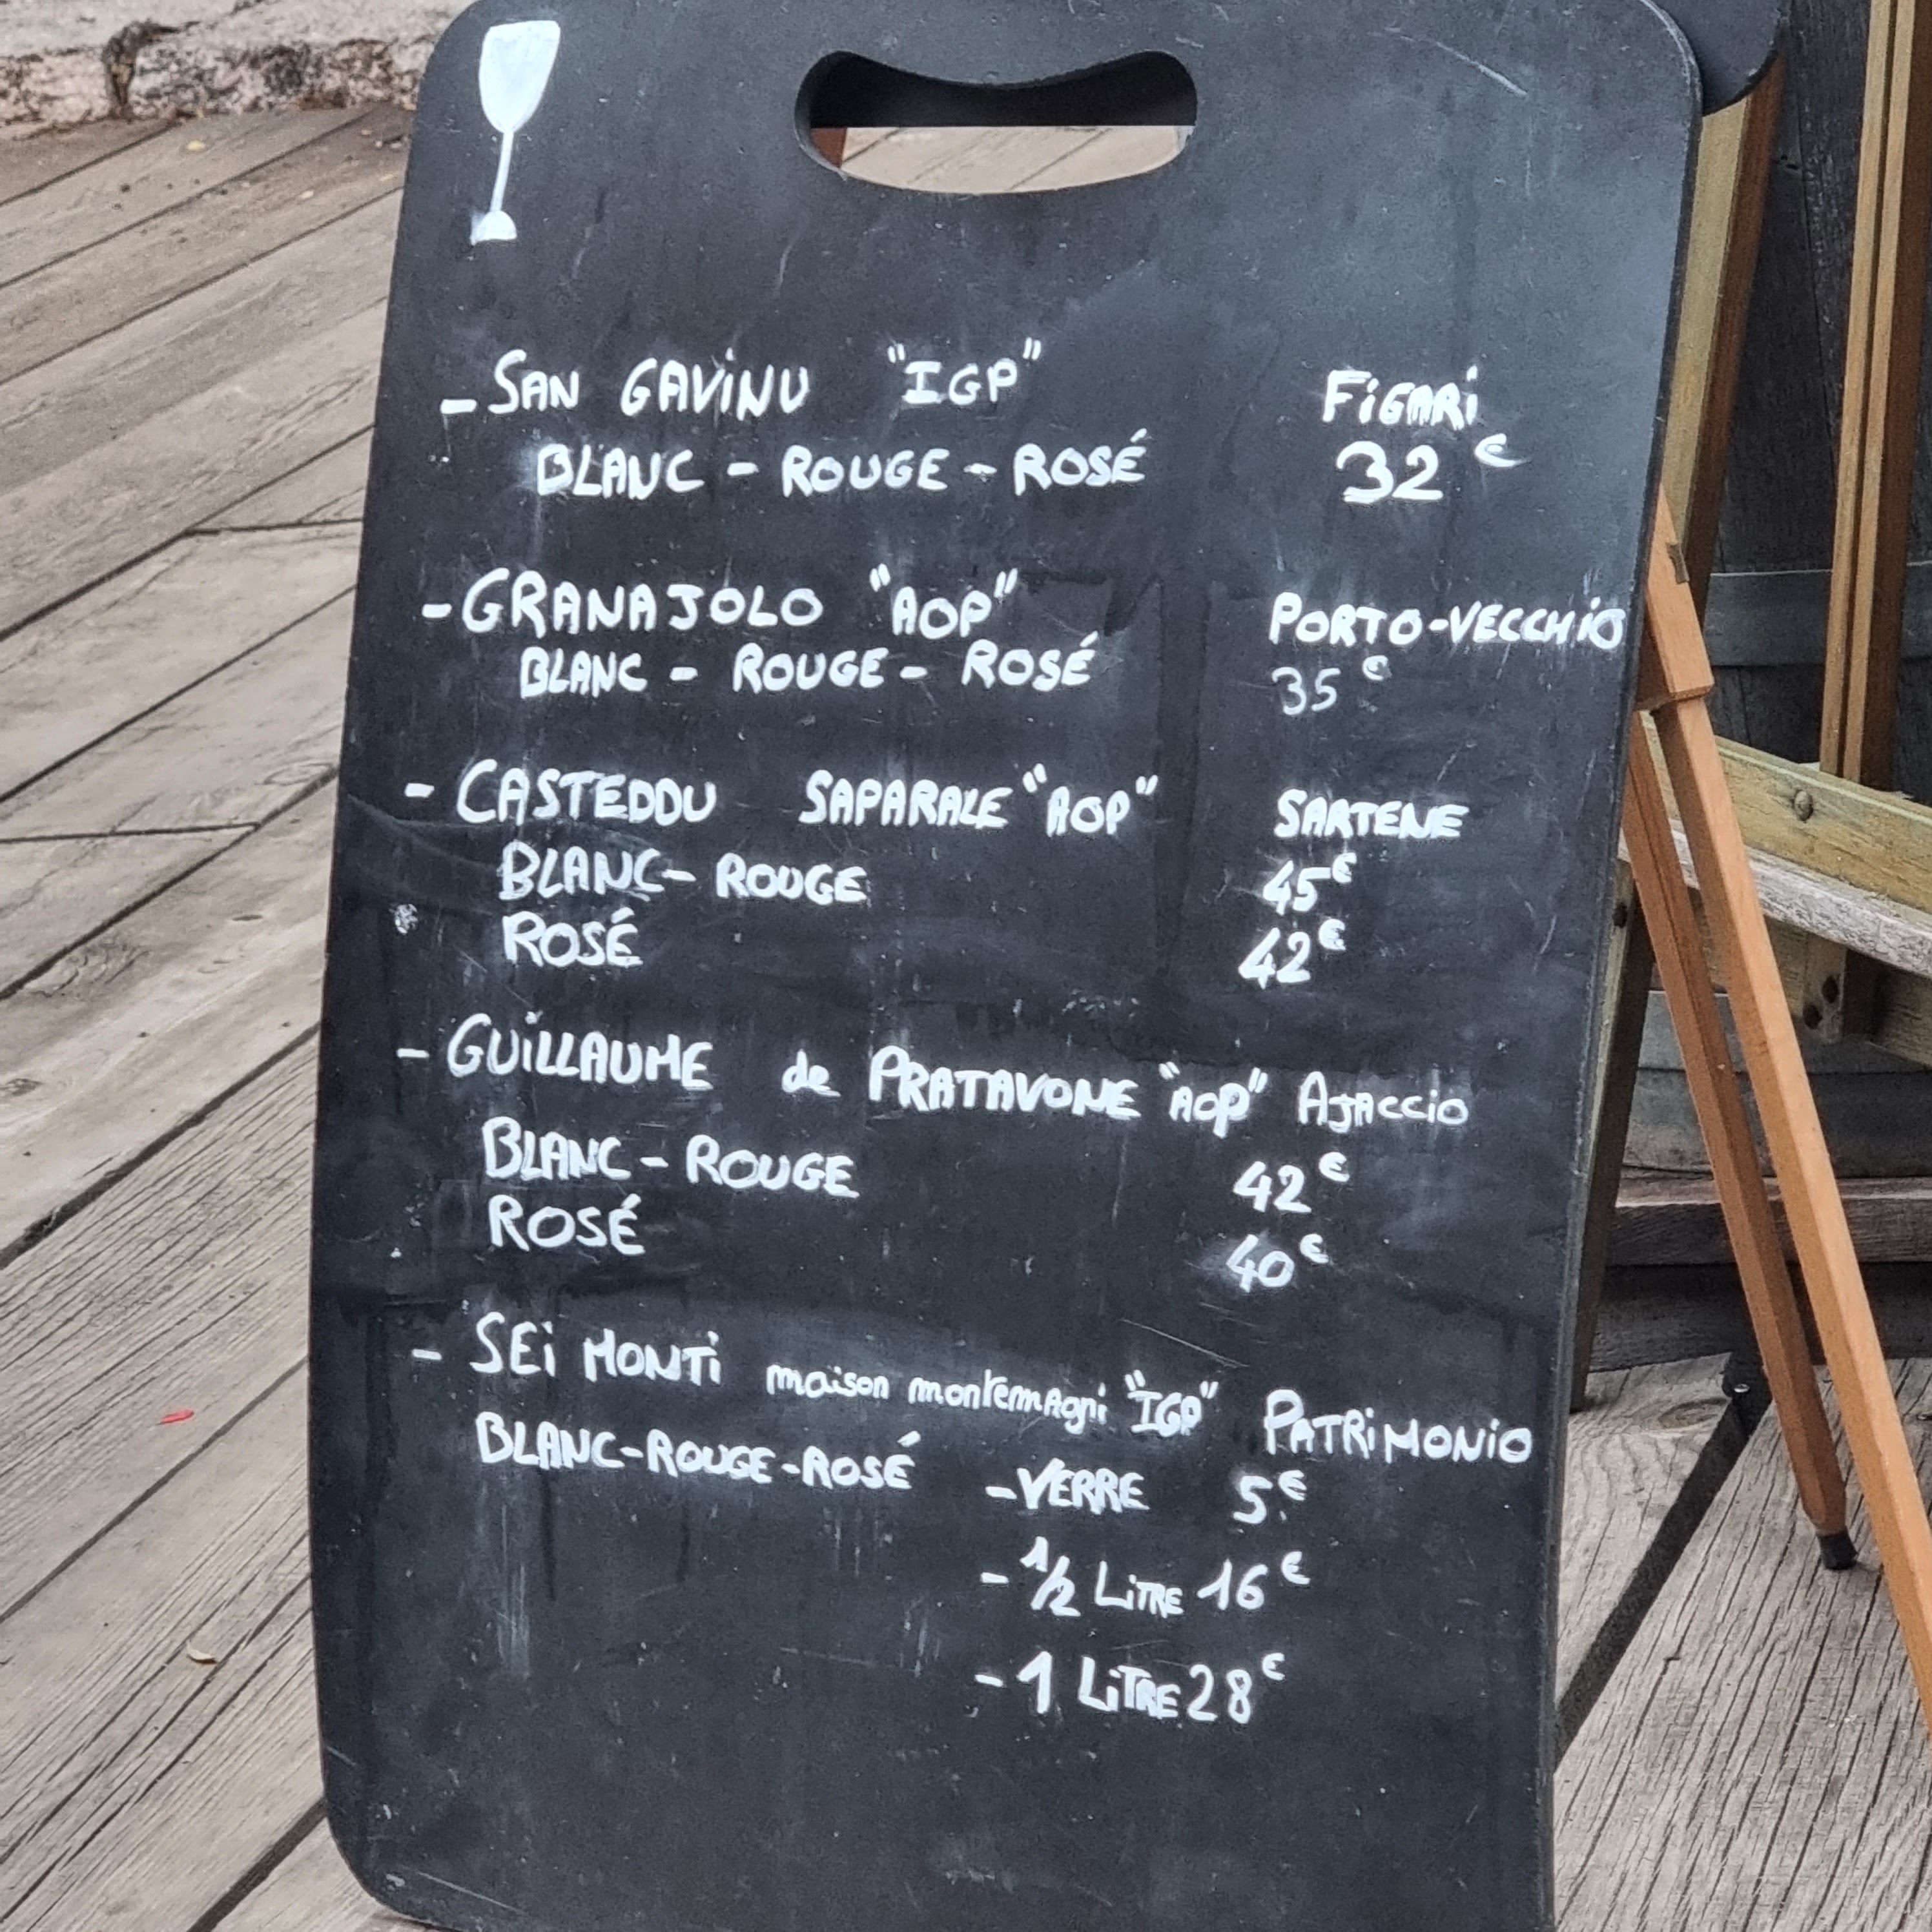 - SAN GAVINU "IGP" FIGARI
BLANC - ROUGE - ROSÉ 32€
- GRANAJOLO "AOP" PORTO-VECCHIO
BLANC - ROUGE - ROSÉ 35€
- CASTEDDU SAPARALE "AOP" SARTENE
BLANC - ROUGE 45€
ROSÉ 42€
- GUILLAUME de PRATAVONE "AOP" AJACCIO
BLANC - ROUGE 42€
ROSÉ 40€
- SEI MONTI maison montemagni "IGP" PATRIMONIO
BLANC-ROUGE-ROSÉ - VERRE 5€
- 1/2 LITRE 16€
- 1 LITRE 28€